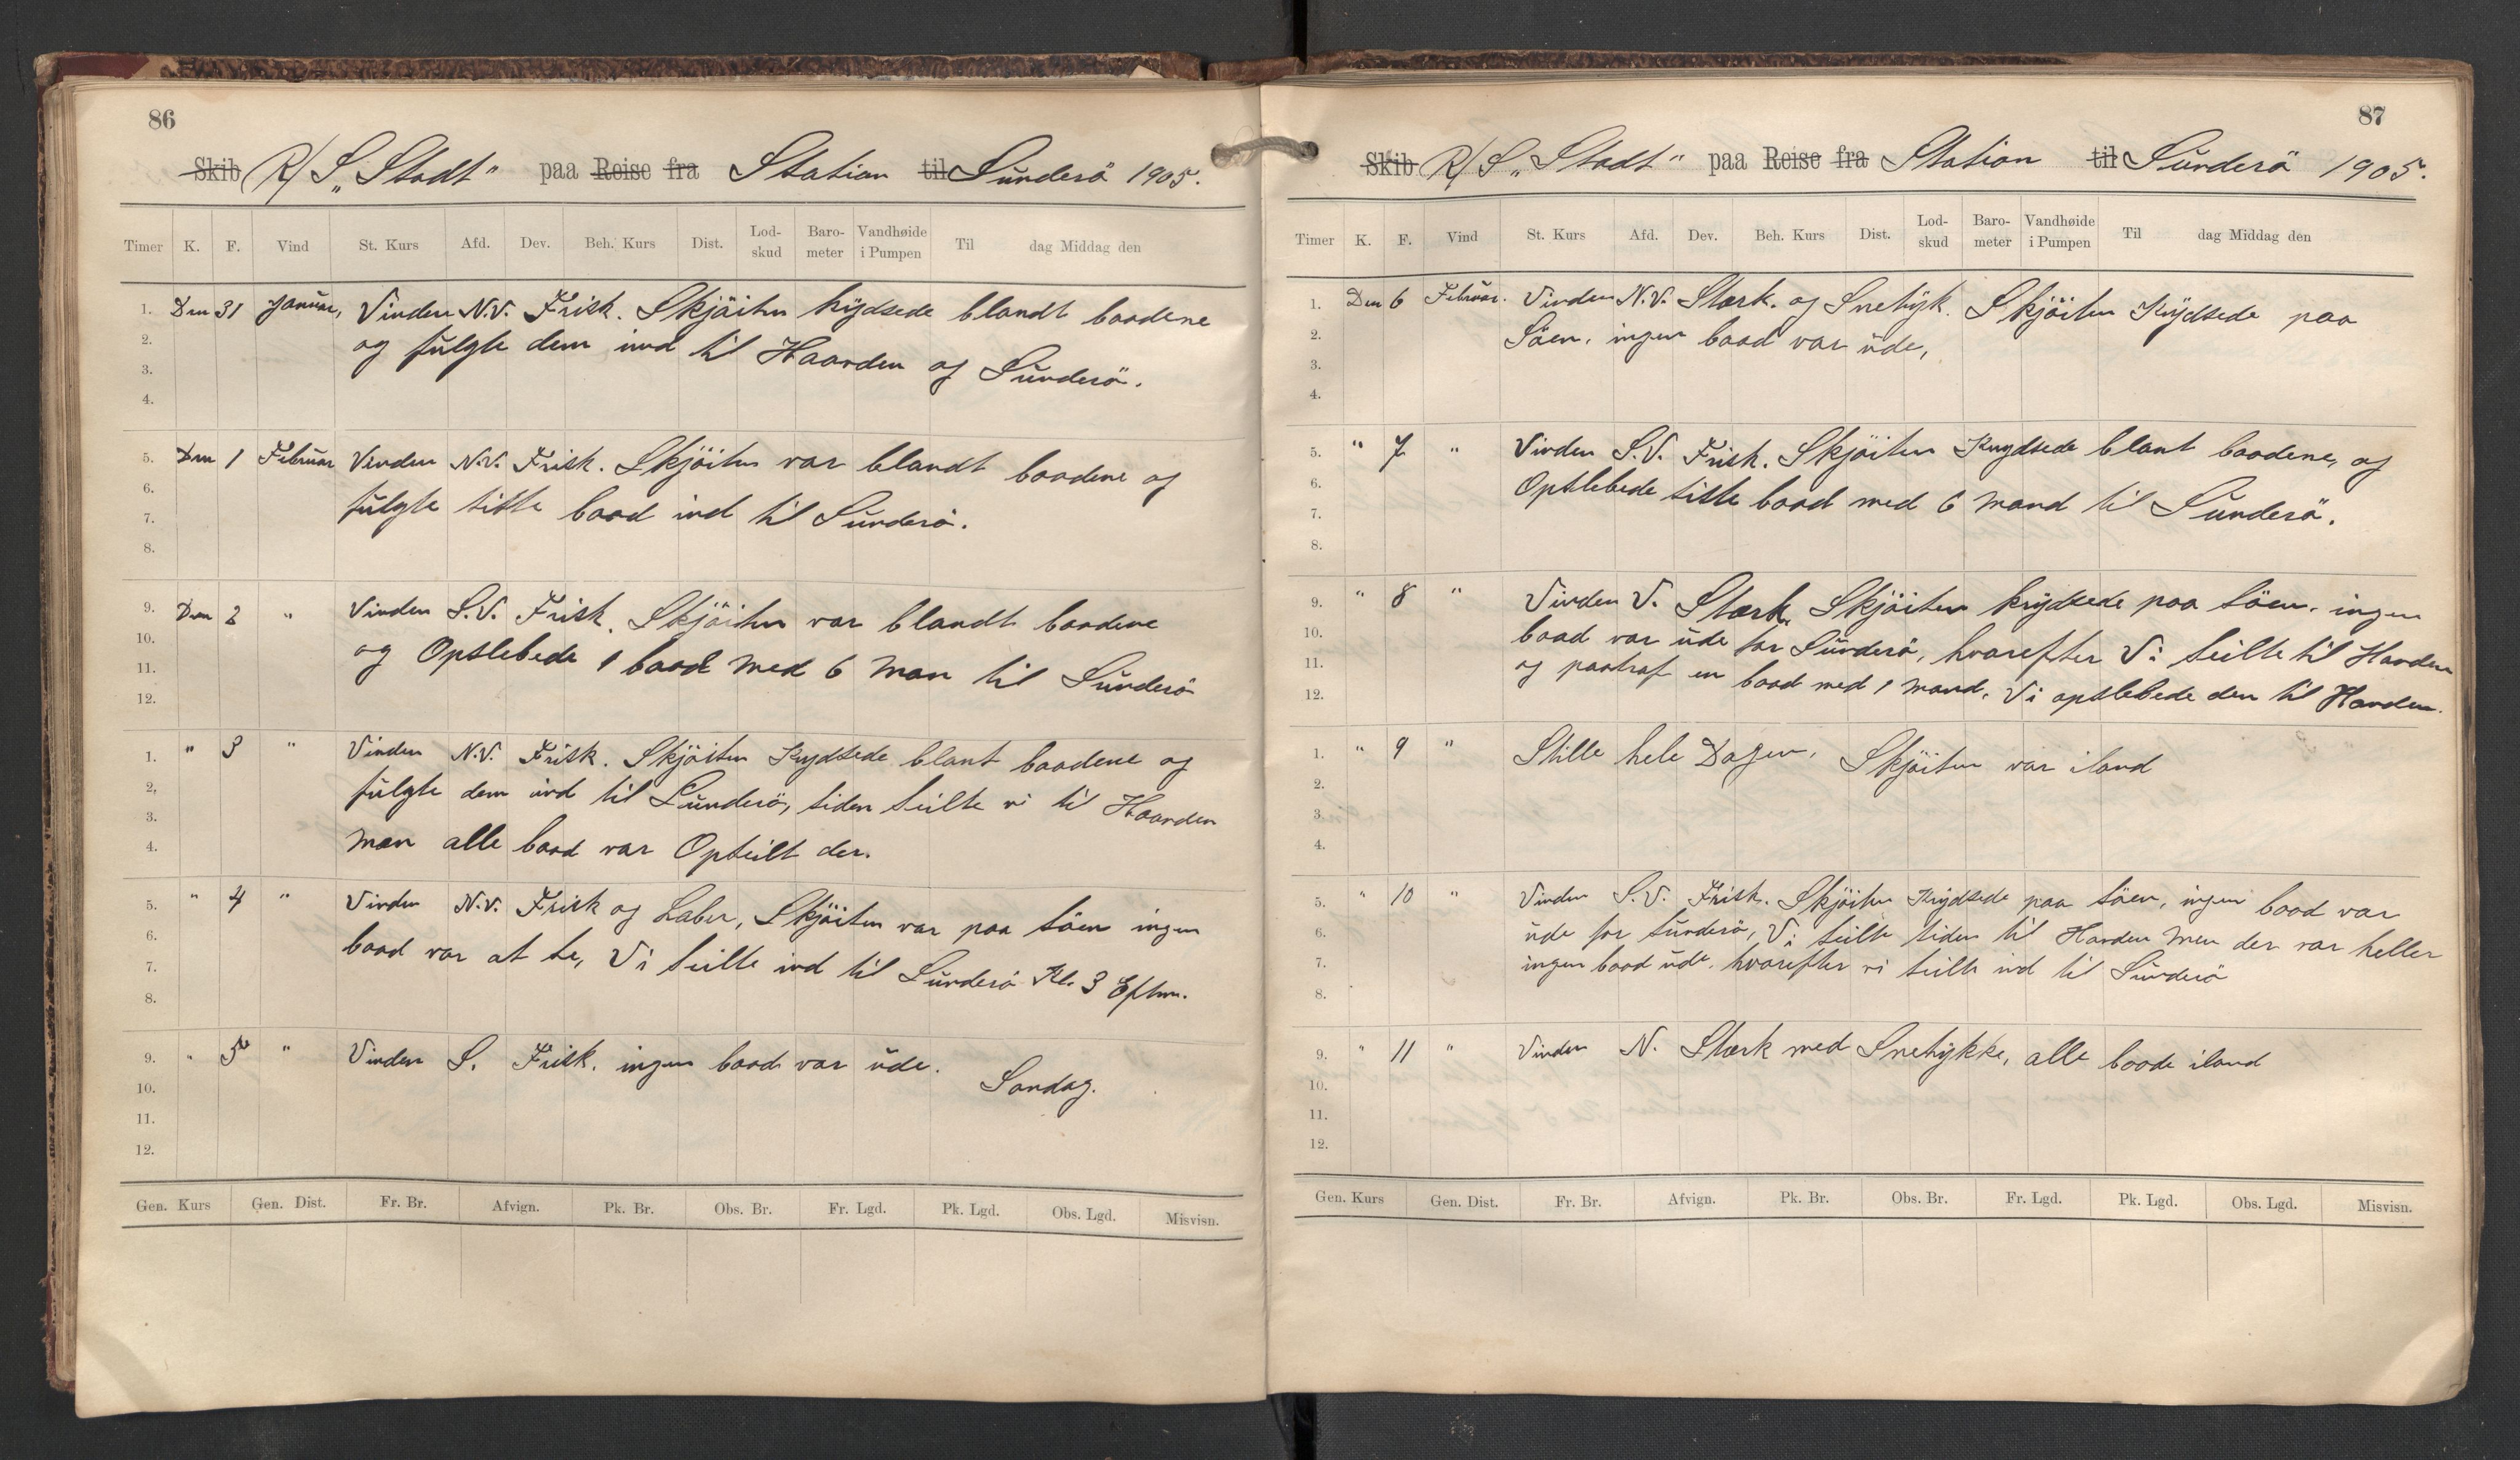 86
Skib R/S „Stadt" paa Reise fra Station til Sunderö 1905.
Timer K. F. Vind St. Kurs Afd. Dev. Beh. Kurs Dist. Lod-skud Baro-meter Vandhøide i Pumpen Til dag Middag den
1. Den 31 Januar, Vinden N.V. Frisk. Skjöiten krydsede blandt baadene
2. og fulgte dem ind til Haarden og Sunderö.
3.
4.
5. Den 1 Februar Vinden N.V. Frisk. Skjöiten var blandt baadene og
6. fulgte siste baad ind til Sunderö.
7.
8.
9. Den 2 " Vinden S.V. Frisk. Skjöiten var blandt baadene
10. og Opslebede 1 baad med 6 man til Sunderö
11.
12.
1. " 3 " Vinden N.V. Frisk. Skjöiten Krydsede blant baadene og
2. fulgte dem ind til Sunderö, siden seilte vi til Haarden
3. men alle baad var Opseilt der.
4.
5. " 4 " Vinden N.V. Frisk og Laber, Skjöiten var paa söen ingen
6. baad var at se, Vi seilte ind til Sunderö Kl. 3 Eftm.
7.
8.
9. " 5te " Vinden S. Frisk. ingen baad var ude. Søndag.
10.
11.
12.
Gen. Kurs Gen. Dist. Fr. Br. Afvign. Pk. Br. Obs. Br. Fr. Lgd. Pk. Lgd. Obs. Lgd. Misvisn.
87
Skib R/S „Stadt" paa Reise fra Station til Sunderö 1905.
Timer K. F. Vind St. Kurs Afd. Dev. Beh. Kurs Dist. Lod-skud Baro-meter Vandhøide i Pumpen Til dag Middag den
1. Den 6 Februar. Vinden N.V. Stærk. og Snetyk. Skjöiten Krydsede paa
2. Söen. ingen baad var ude,
3.
4.
5. " 7 " Vinden S.V. Frisk. Skjöiten Krydsede blant baadene, og
6. Opslebede siste baad med 6 mand til Sunderö.
7.
8.
9. " 8 " Vinden V. Stærk. Skjöiten krydsede paa söen. ingen
10. baad var ude for Sunderö, hvorefter Vi seilte til Harden
11. og paatraf en baad med 1 mand. Vi opslebede den til Harden.
12.
1. " 9 " Stille hele Dagen, Skjöiten var iland
2.
3.
4.
5. " 10 " Vinden S.V. Frisk. Skjöiten Krydsede paa söen, ingen baad var
6. ude for Sunderö, Vi seilte siden til Harden men der var heller
7. ingen baad ude. hvorefter vi seilte ind til Sunderö
8.
9. " 11 " Vinden N. Stærk med Snetykke, alle baade iland
10.
11.
12.
Gen. Kurs Gen. Dist. Fr. Br. Afvign. Pk. Br. Obs. Br. Fr. Lgd. Pk. Lgd. Obs. Lgd. Misvisn.